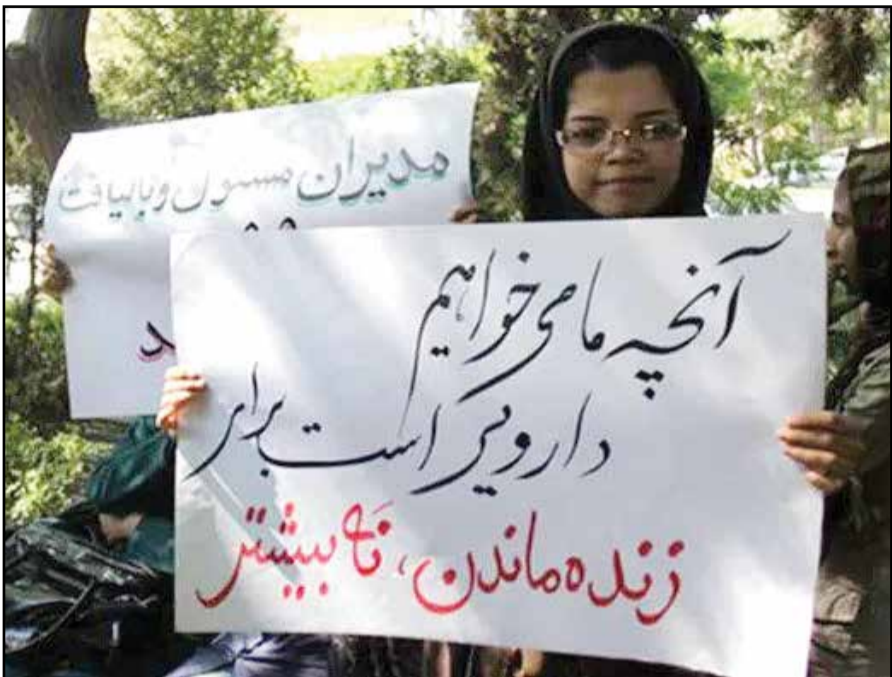 مدیران مسئول و بالیاقت
آنچه ما می خواهیم
دارویی است برای
زنده ماندن، نه بیشتر